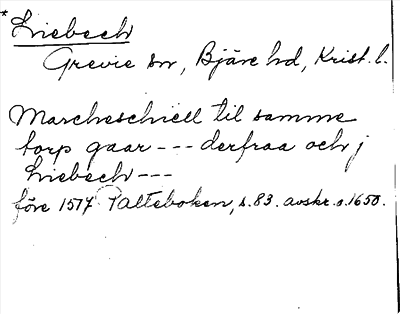 * Liebech
Grevie sn, Bjäre hd, Krist. l.
Marcheschiell til samme
torp gaar --- derfraa och j
Liebech ---
före 1517 Palteboken, s. 83. avskr. o. 1650.